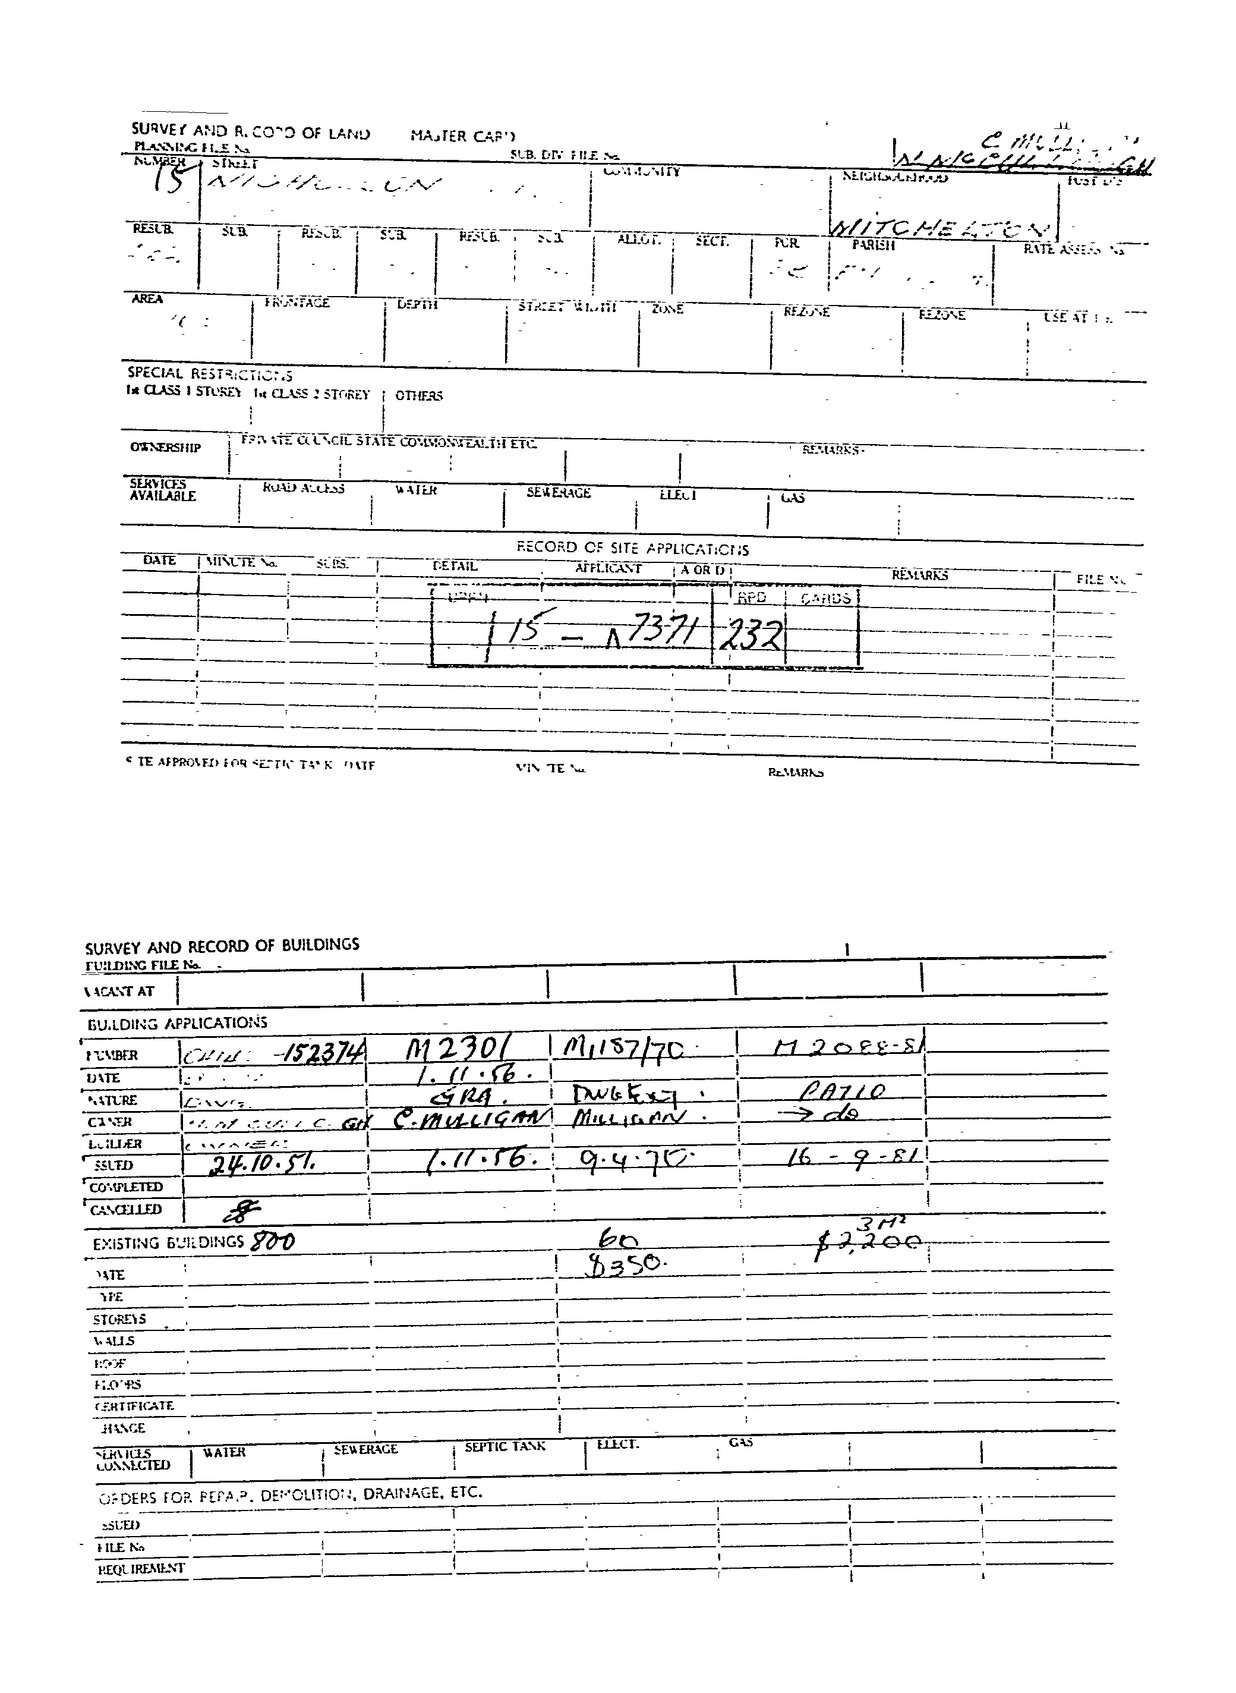 SURVEY AND RECORD OF LAND MASTER CARD
PLANNING FILE No. SUB. DIV. FILE No. C MULLI
NUMBER STREET COMMUNITY NEIGHBOURHOOD POST DIS
15 MITCHELTON
RESUB. SUB. RESUB. SUB. RESUB. SUB. ALLOT. SECT. POR. PARISH RATE ASSESS No.
AREA FRONTAGE DEPTH STREET WIDTH ZONE REZONE REZONE USE AT
SPECIAL RESTRICTIONS
1st CLASS 1 STOREY 1st CLASS 2 STOREY OTHERS
OWNERSHIP PRIVATE COUNCIL STATE COMMONWEALTH ETC. REMARKS-
SERVICES AVAILABLE ROAD ACCESS WATER SEWERAGE ELECT GAS
RECORD OF SITE APPLICATIONS
DATE MINUTE No. SUBS. DETAIL APPLICANT A OR D REMARKS FILE No.
RPD CARDS
15 - 7371 232
SITE APPROVED FOR SEPTIC TANK DATE MINUTE No. REMARKS
SURVEY AND RECORD OF BUILDINGS
BUILDING FILE No.
VACANT AT
BUILDING APPLICATIONS
NUMBER -152374 M2301 M1187/70 M2088-81
DATE 1.11.56.
NATURE DWG. GRA. DWG Ext. PATIO
OWNER C. MULLIGAN MILLIGAN. → do
BUILDER OWNER
ISSUED 24.10.51. 1.11.56. 9.4.70. 16-9-81
COMPLETED
CANCELLED
EXISTING BUILDINGS 800 60 3M² $2,200
DATE $350.
TYPE
STOREYS
WALLS
ROOF
FLOORS
CERTIFICATE
CHANGE
SERVICES CONNECTED WATER SEWERAGE SEPTIC TANK ELECT. GAS
ORDERS FOR REPAIR, DEMOLITION, DRAINAGE, ETC.
ISSUED
FILE No
REQUIREMENT